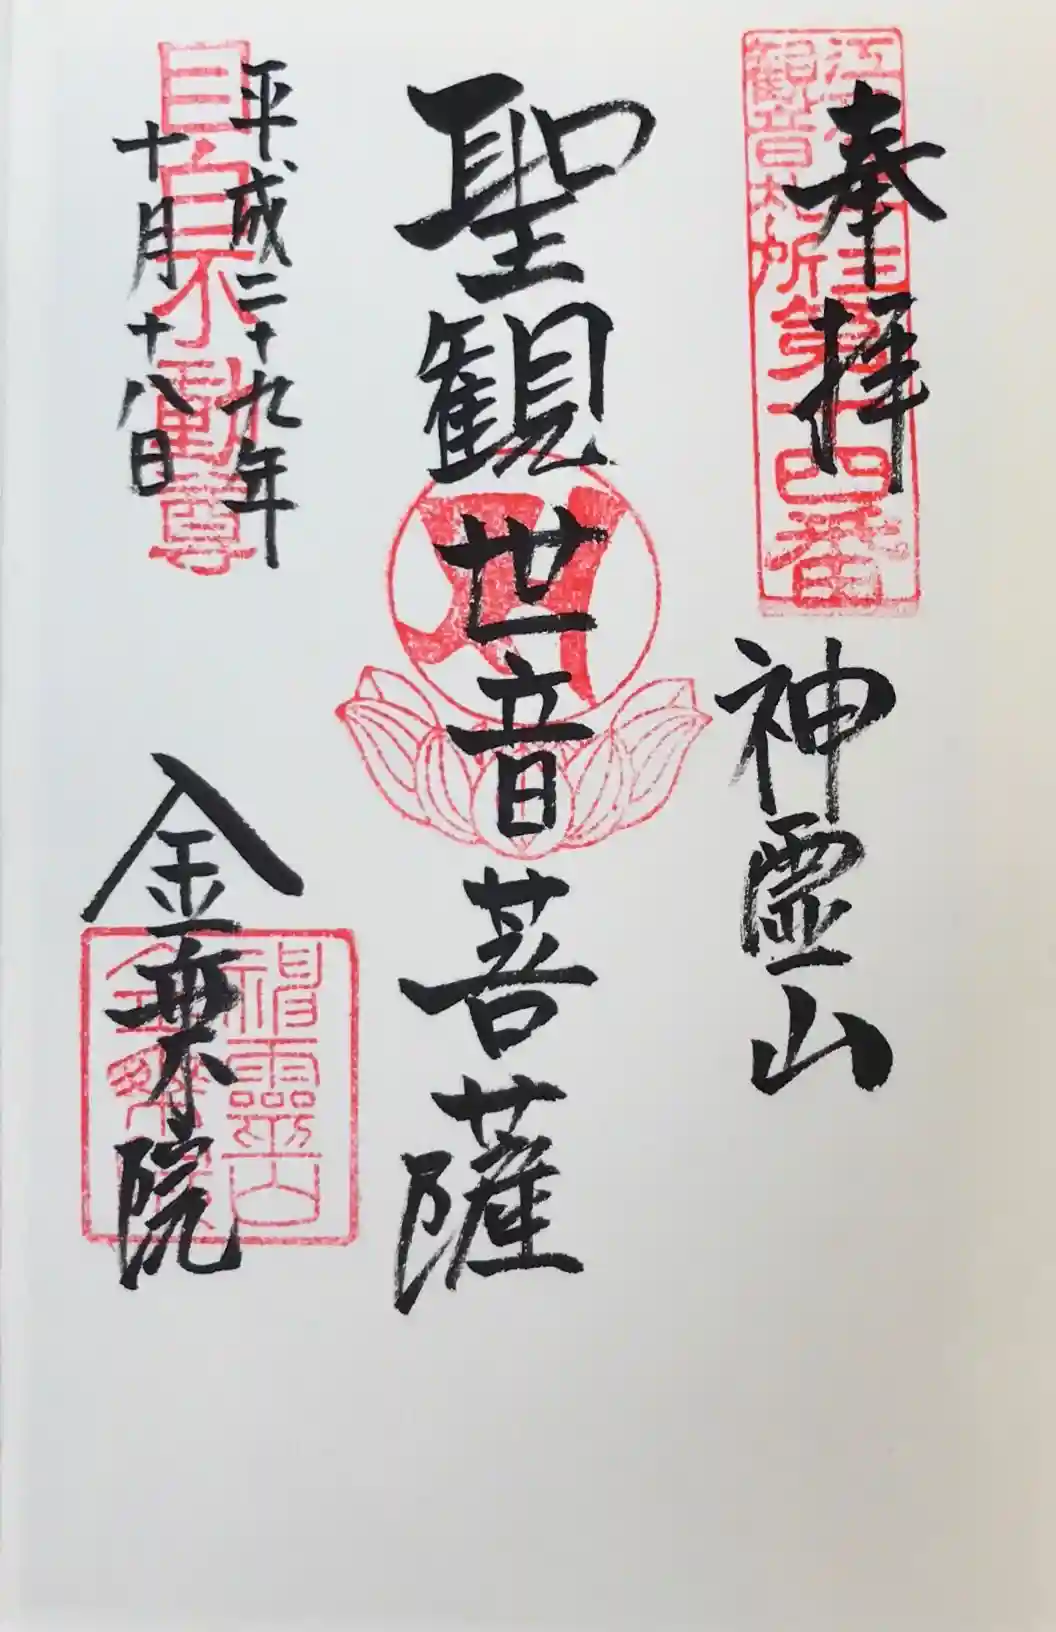 奉拝
神霊山
江戸三十三
観音札所
第十四番
聖観世音菩薩
平成二十九年
十月十八日
目白不動尊
金乗院
神靈山